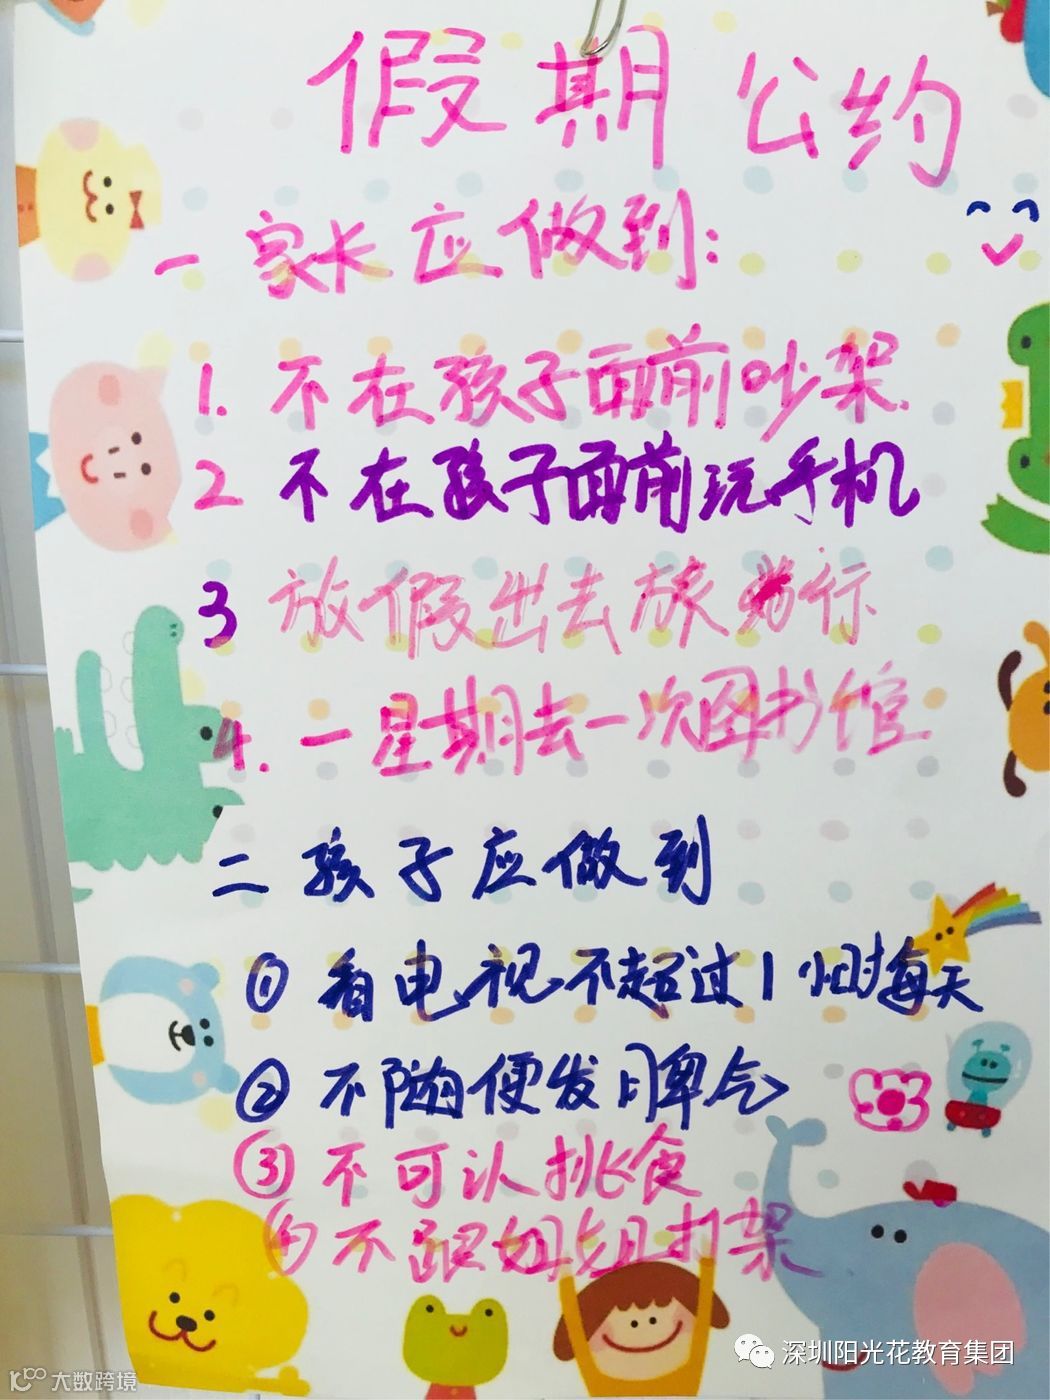 假期公约
一 家长应做到:
1. 不在孩子面前吵架.
2 不在孩子面前玩手机
3 放假出去旅行
4. 一星期去一次图书馆
二 孩子应做到
① 看电视不超过1小时每天
② 不随便发脾气
③ 不可认挑食
④ 不跟姐姐打架
深圳阳光花教育集团
大数跨境